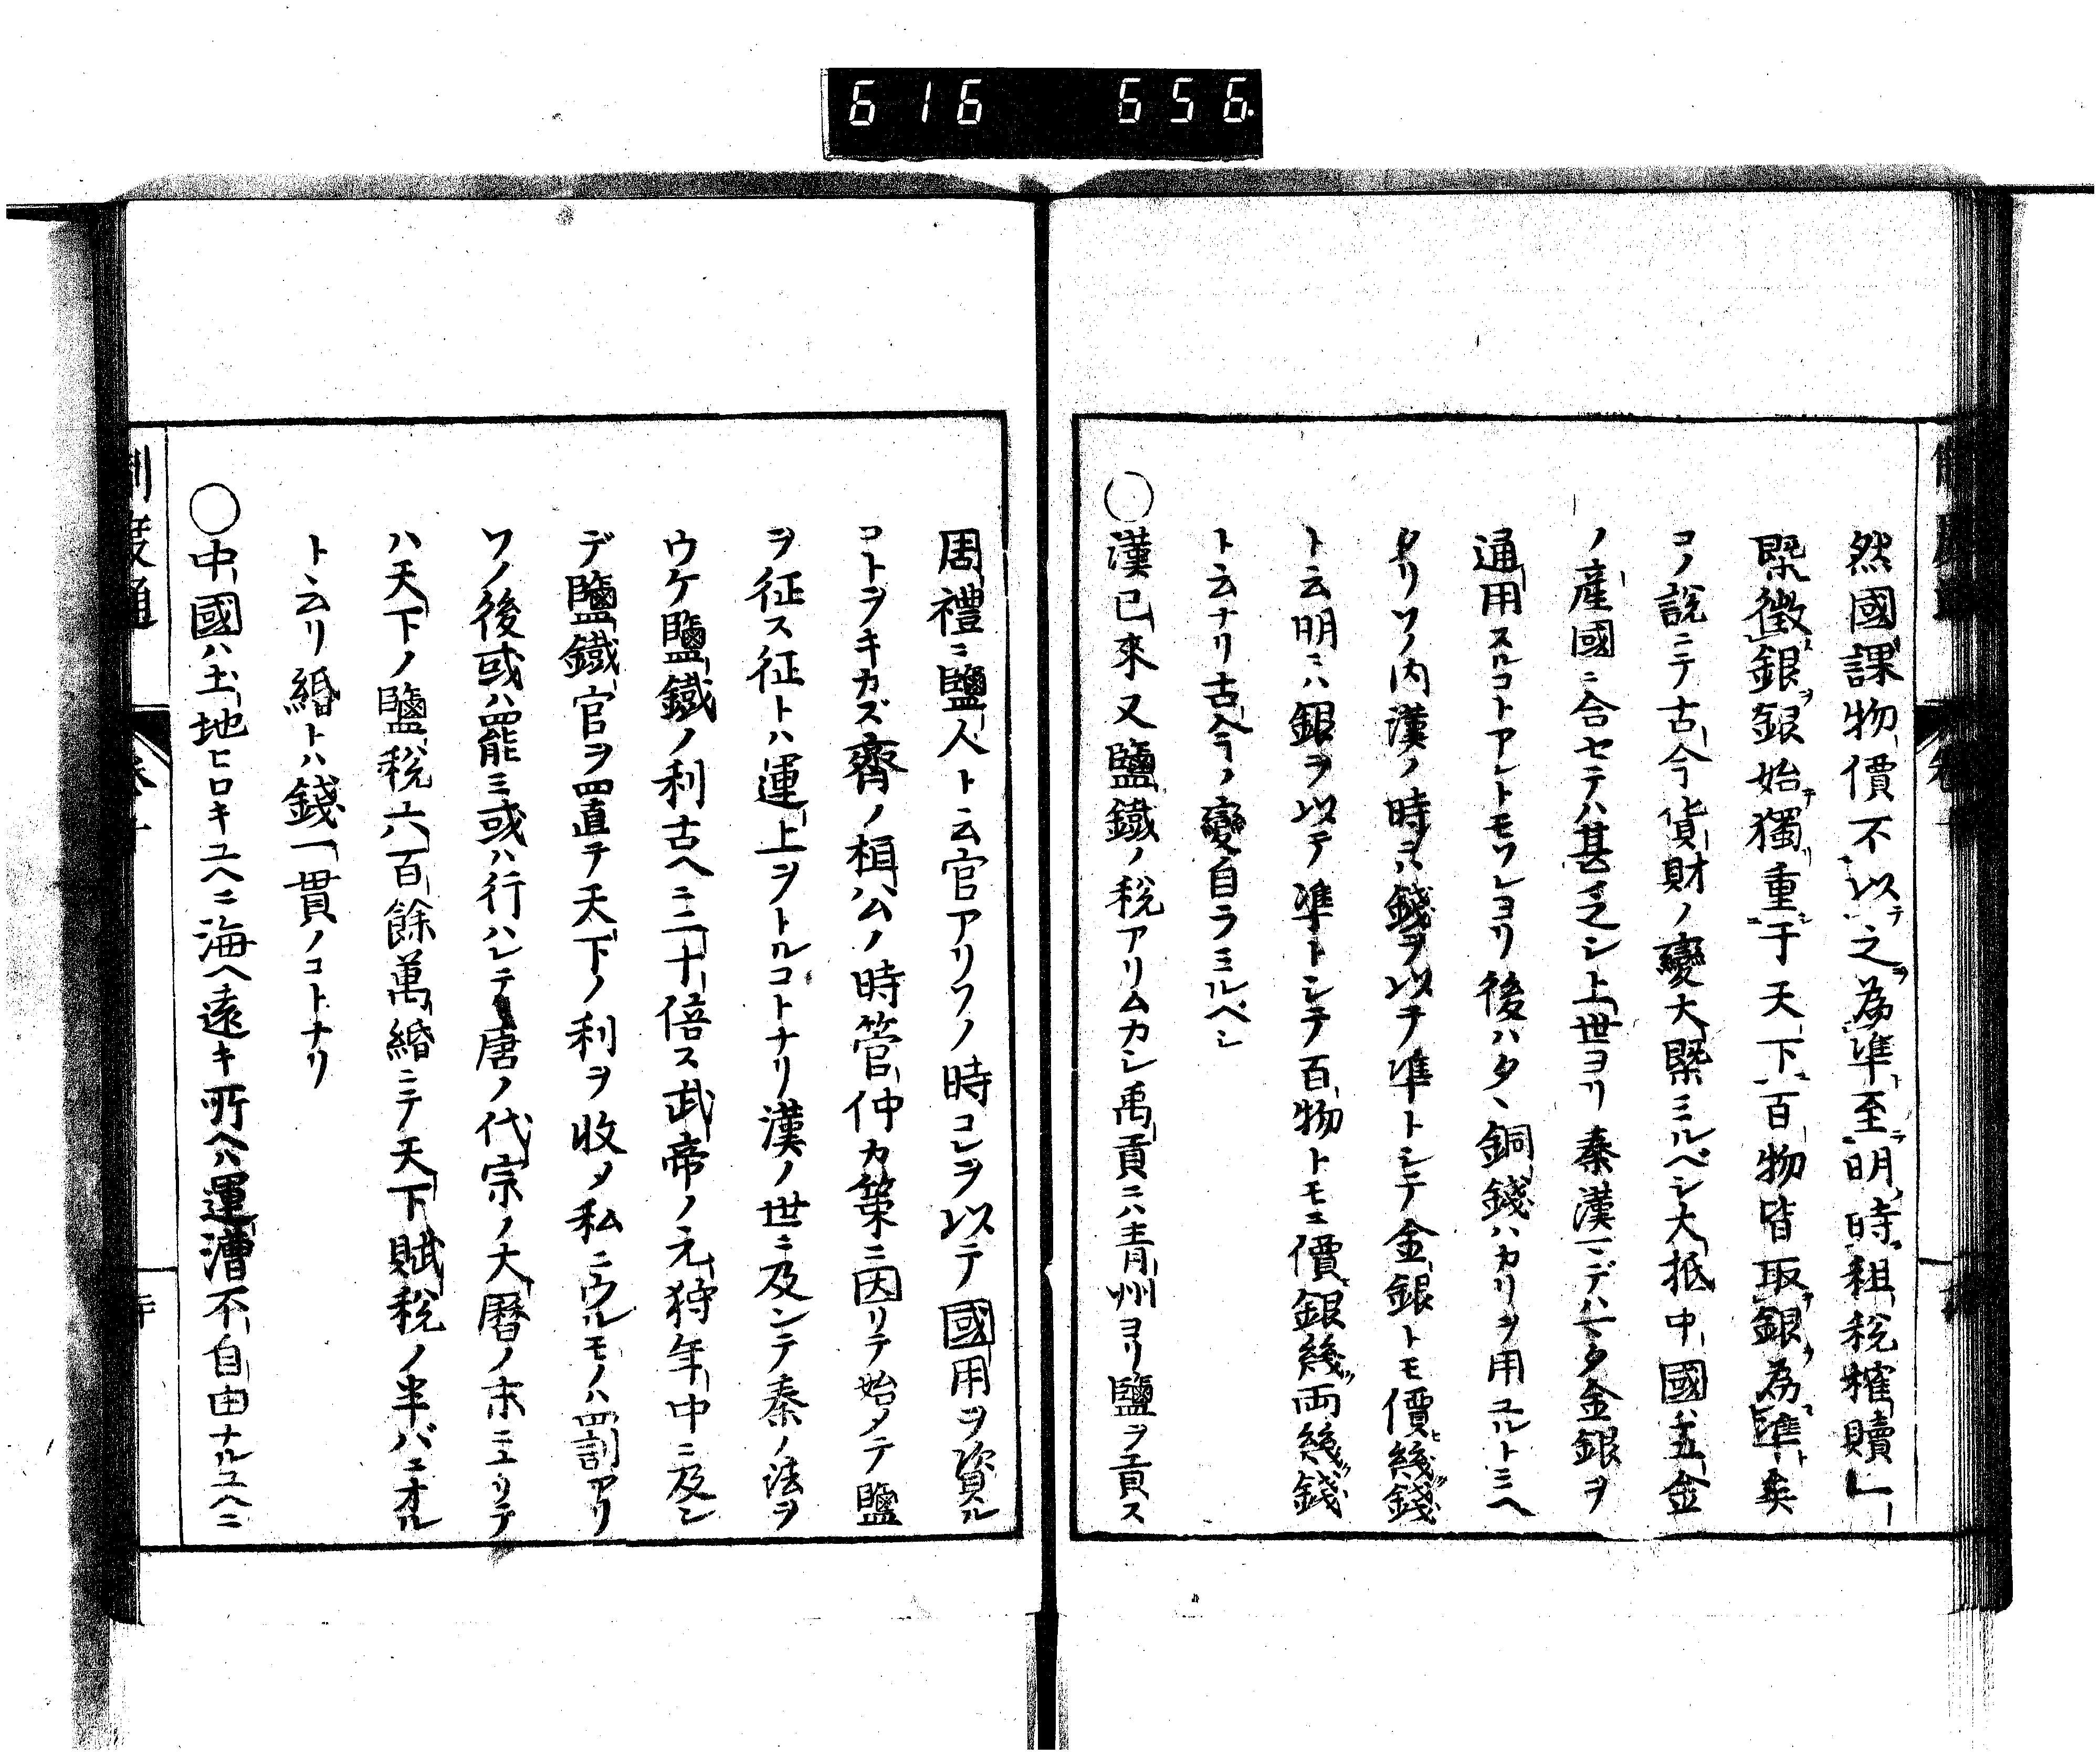 616 656
然國課物價不以之為準至明時租税榷贖
槩徵銀銀始獨重于天下百物皆取銀為準矣
コノ説ニテ古今貨財ノ變大槩ミルベシ大抵中國ハ五金
ノ産國ニ合セテハ甚乏シ上世ヨリ秦漢マデハマタ金銀ヲ
通用スルコトアレトモソレヨリ後ハタヽ銅錢ハカリヲ用ユルトミヘ
タリソノ内漢ノ時ヲハ錢ヲ以テ準トシテ金銀トモ價幾錢
ト云明ニハ銀ヲ以テ準トシテ百物トモニ價銀幾両幾錢
ト云ナリ古今ノ變自ラミルベシ
○漢已來又鹽鐵ノ税アリムカシ禹貢ニハ青州ヨリ鹽ヲ貢ス
周禮ニ鹽人ト云官アリソノ時コレヲ以テ國用ヲ資ル
コトヲキカズ齊ノ桓公ノ時管仲カ策ニ因リテ始メテ鹽
ヲ征ス征トハ運上ヲトルコトナリ漢ノ世ニ及ンテ秦ノ法ヲ
ウケ鹽鐵ノ利古ヘニ二十倍ス武帝ノ元狩年中ニ及ン
デ鹽鐵官ヲ置テ天下ノ利ヲ收メ私ニウルモノハ罰アリ
ソノ後或ハ罷ミ或ハ行ハレテ唐ノ代宗ノ大暦ノ末ニユリテ
ハ天下ノ鹽税六百餘萬緡ニテ天下賦税ノ半バニオル
ト云リ緡トハ錢一貫ノコトナリ
○中國ハ土地ヒロキユヘニ海ヘ遠キ所ヘハ運漕不自由ナルユヘニ
制度通